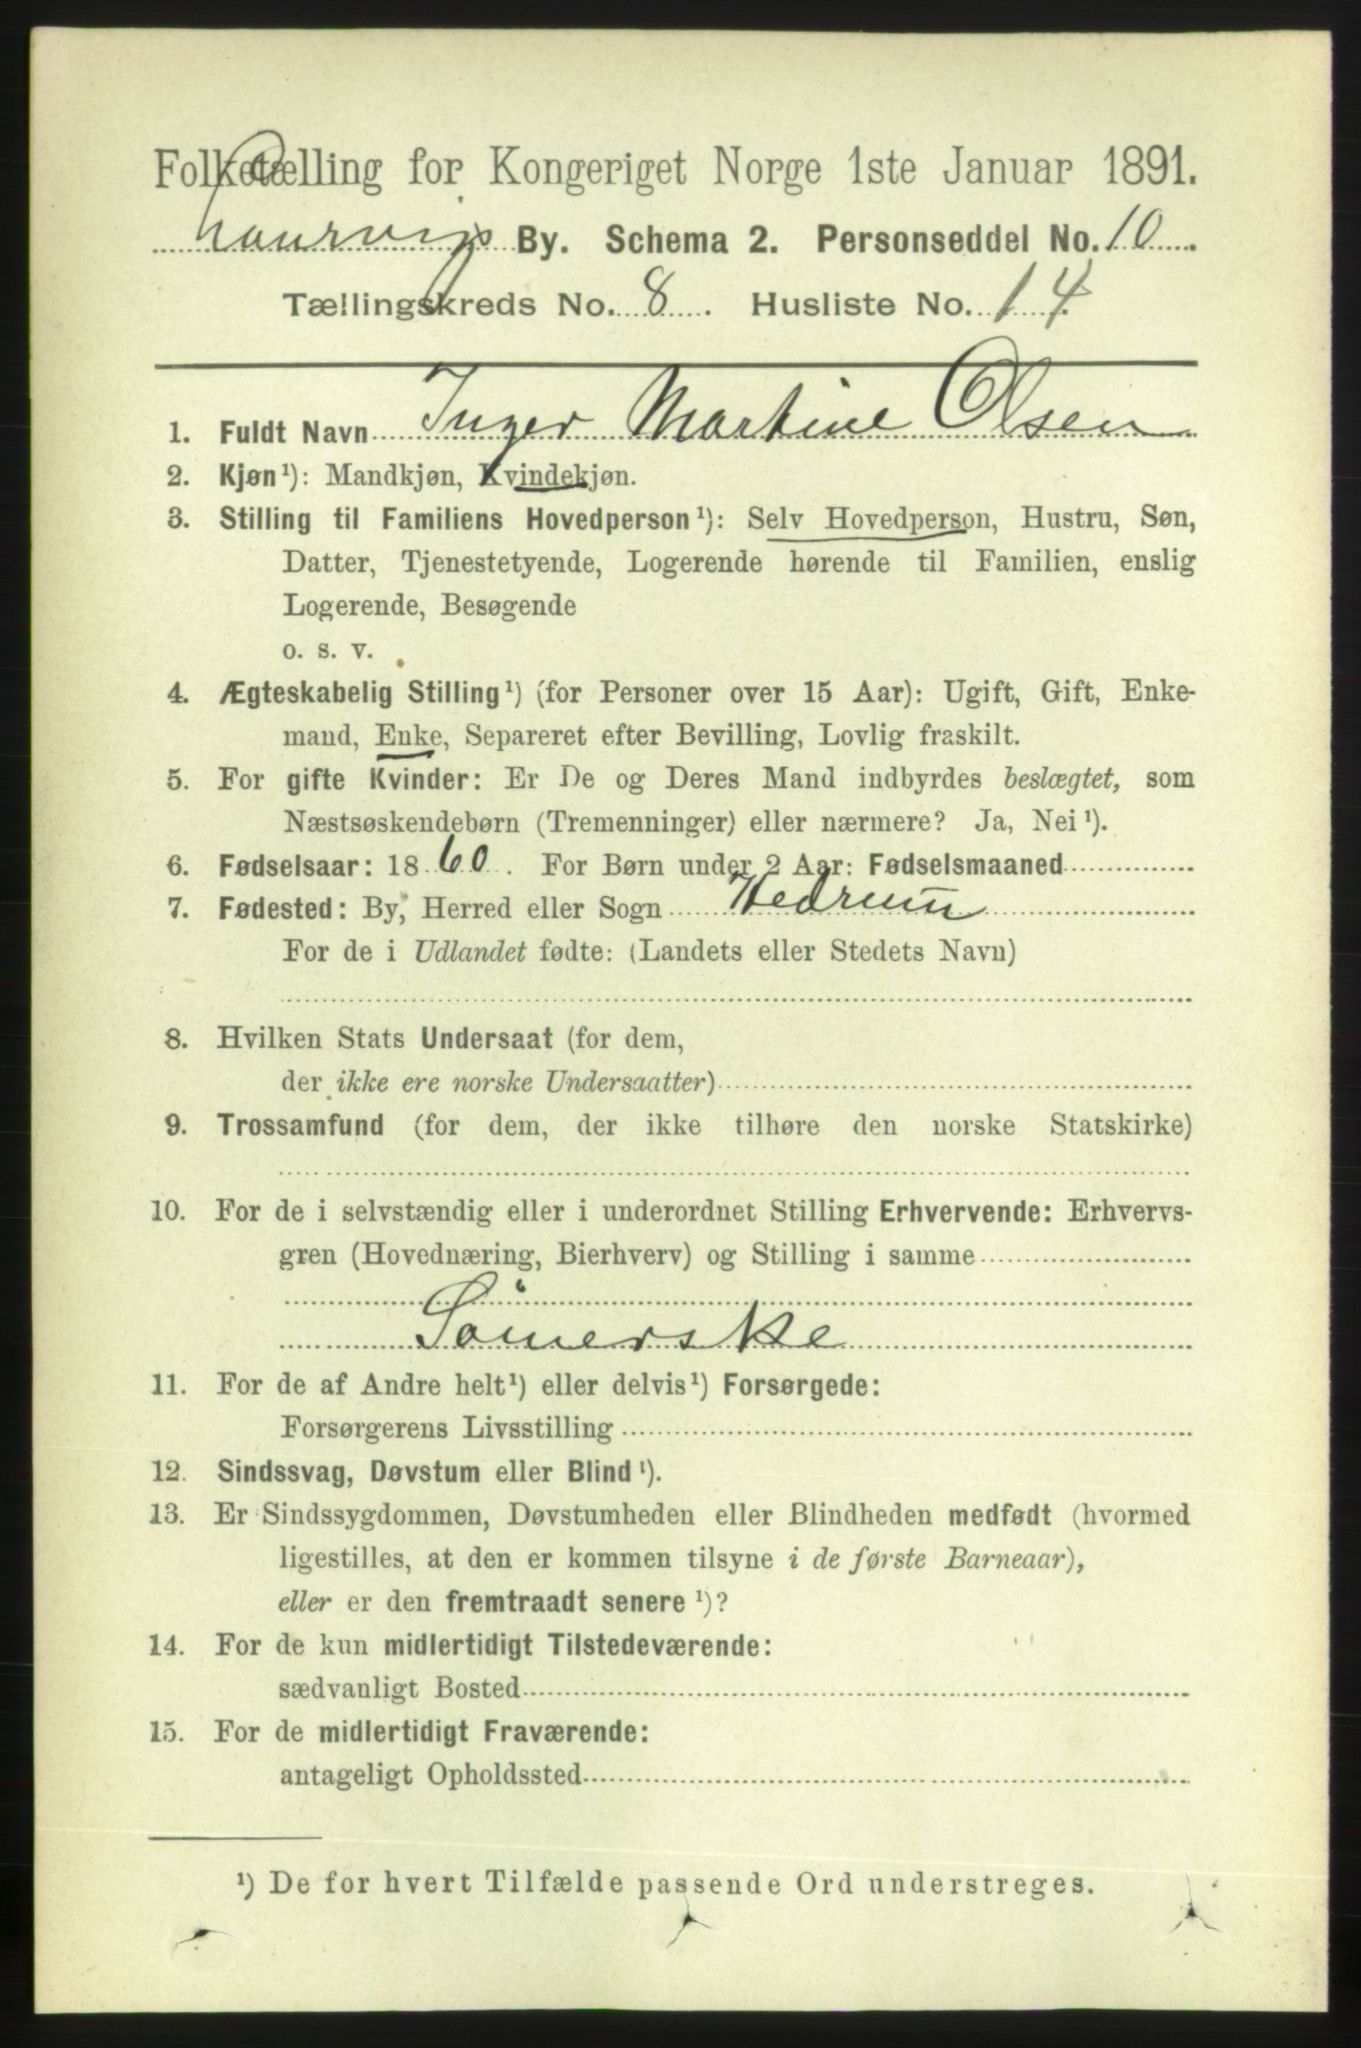 Folketælling for Kongeriget Norge 1ste Januar 1891.
Laurvig By. Schema 2. Personseddel No. 10.
Tællingskreds No. 8. Husliste No. 14.
1. Fuldt Navn Inger Martine Olsen
2. Kjøn¹): Mandkjøn, Kvindekjøn.
3. Stilling til Familiens Hovedperson¹): Selv Hovedperson, Hustru, Søn,
Datter, Tjenestetyende, Logerende hørende til Familien, enslig
Logerende, Besøgende
o. s. v.
4. Ægteskabelig Stilling¹) (for Personer over 15 Aar): Ugift, Gift, Enke-
mand, Enke, Separeret efter Bevilling, Lovlig fraskilt.
5. For gifte Kvinder: Er De og Deres Mand indbyrdes beslægtet, som
Næstsøskendebørn (Tremenninger) eller nærmere? Ja, Nei¹).
6. Fødselsaar: 1860. For Børn under 2 Aar: Fødselsmaaned
7. Fødested: By, Herred eller Sogn Hedrum
For de i Udlandet fødte: (Landets eller Stedets Navn)
8. Hvilken Stats Undersaat (for dem,
der ikke ere norske Undersaatter)
9. Trossamfund (for dem, der ikke tilhøre den norske Statskirke)
10. For de i selvstændig eller i underordnet Stilling Erhvervende: Erhvervs-
gren (Hovednæring, Bierhverv) og Stilling i samme
Sömerske
11. For de af Andre helt¹) eller delvis¹) Forsørgede:
Forsørgerens Livsstilling
12. Sindssvag, Døvstum eller Blind¹).
13. Er Sindssygdommen, Døvstumheden eller Blindheden medfødt (hvormed
ligestilles, at den er kommen tilsyne i de første Barneaar),
eller er den fremtraadt senere¹)?
14. For de kun midlertidigt Tilstedeværende:
sædvanligt Bosted
15. For de midlertidigt Fraværende:
antageligt Opholdssted
¹) De for hvert Tilfælde passende Ord understreges.